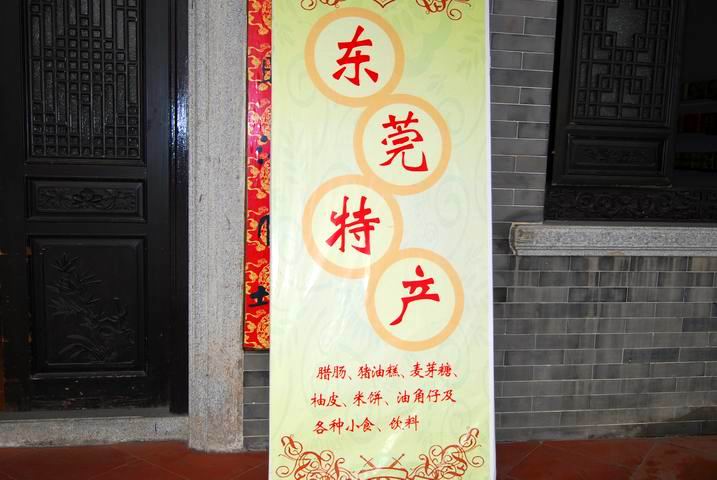 东
莞
特
产
腊肠、猪油糕、麦芽糖、
柚皮、米饼、油角仔及
各种小食、饮料